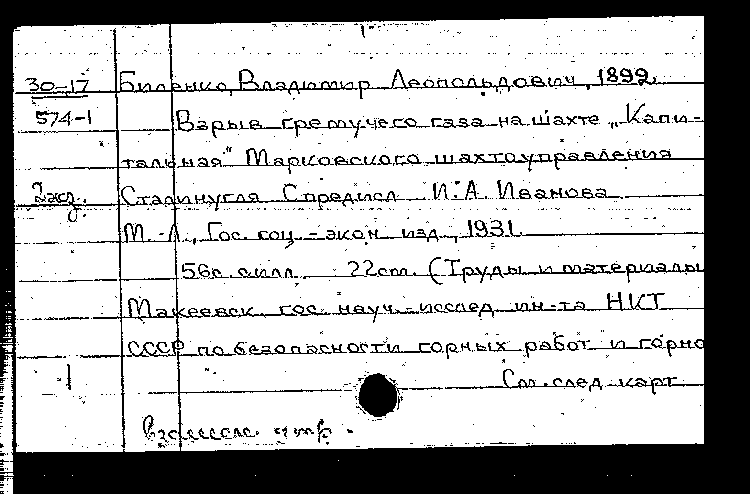 30-17 Биленко, Владимир Леопольдович, 1899.
574-1 Взрыв гремучего газа на шахте „Капи-
тальная" Марковского шахтоуправления
2 экз. Сталинугля С предисл И. А. Иванова
М.-Л., Гос. соц.-экон. изд., 1931.
56с. с илл. 22 см. (Труды и материалы
Макеевск. гос. науч.-исслед. ин-та НКТ
СССР по безопасности горных работ и горно
1 См. след. карт